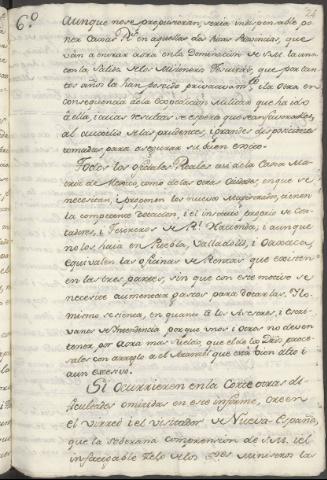 6.º
24
Aunque no se propusieran, seria indispensable po-
ner Caxas R.s en aquellas dos Ricas Provincias, que
ván á entrar aora en la Dominacion de S.M. la una
con la Salida de los Misioneros Jesuitas, que por tan-
tos años la han poseido privatibam.te, i la otra en
consequencia de la expedicion Militar que ha ido
á ella, i cuias resultas se espera que sean favorables,
al auxilio de las prudentes, i grandes disposiciones
tomadas para asegurar su buen exito.
Todos los oficiales Reales asi de la Caxa Ma-
triz de Mexico, como de las otras Ciudades, en que se
necesitan, i proponen los nuevos Magistrados, tienen
la competente dotacion, i el instituto proprio de Con-
tadores, i Tesoreros de R.l Hacienda; i aunque
no los haia en Puebla, Valladolid, i Oaxaca,
equivalen las oficinas de Rentas que existen
en las tres partes, sin que con este motivo se
necesite aumentar gastos para dotarlas. Lo
mismo sienta, en quanto á los Asesores, i Escri-
vanos de Intendencia porque unos i otros no deven
tener por aora mas sueldo que el de los Dros proce-
sales con arreglo al Arancel que está bien alto i
aun excesivo.
Si ocurrieren en la Corte otras di-
ficultades omitidas en este informe, creen
el Virrei i el Visitador de Nueva España,
que la soberana comprension de S.M. i el
infatigable zelo de los Ministros las